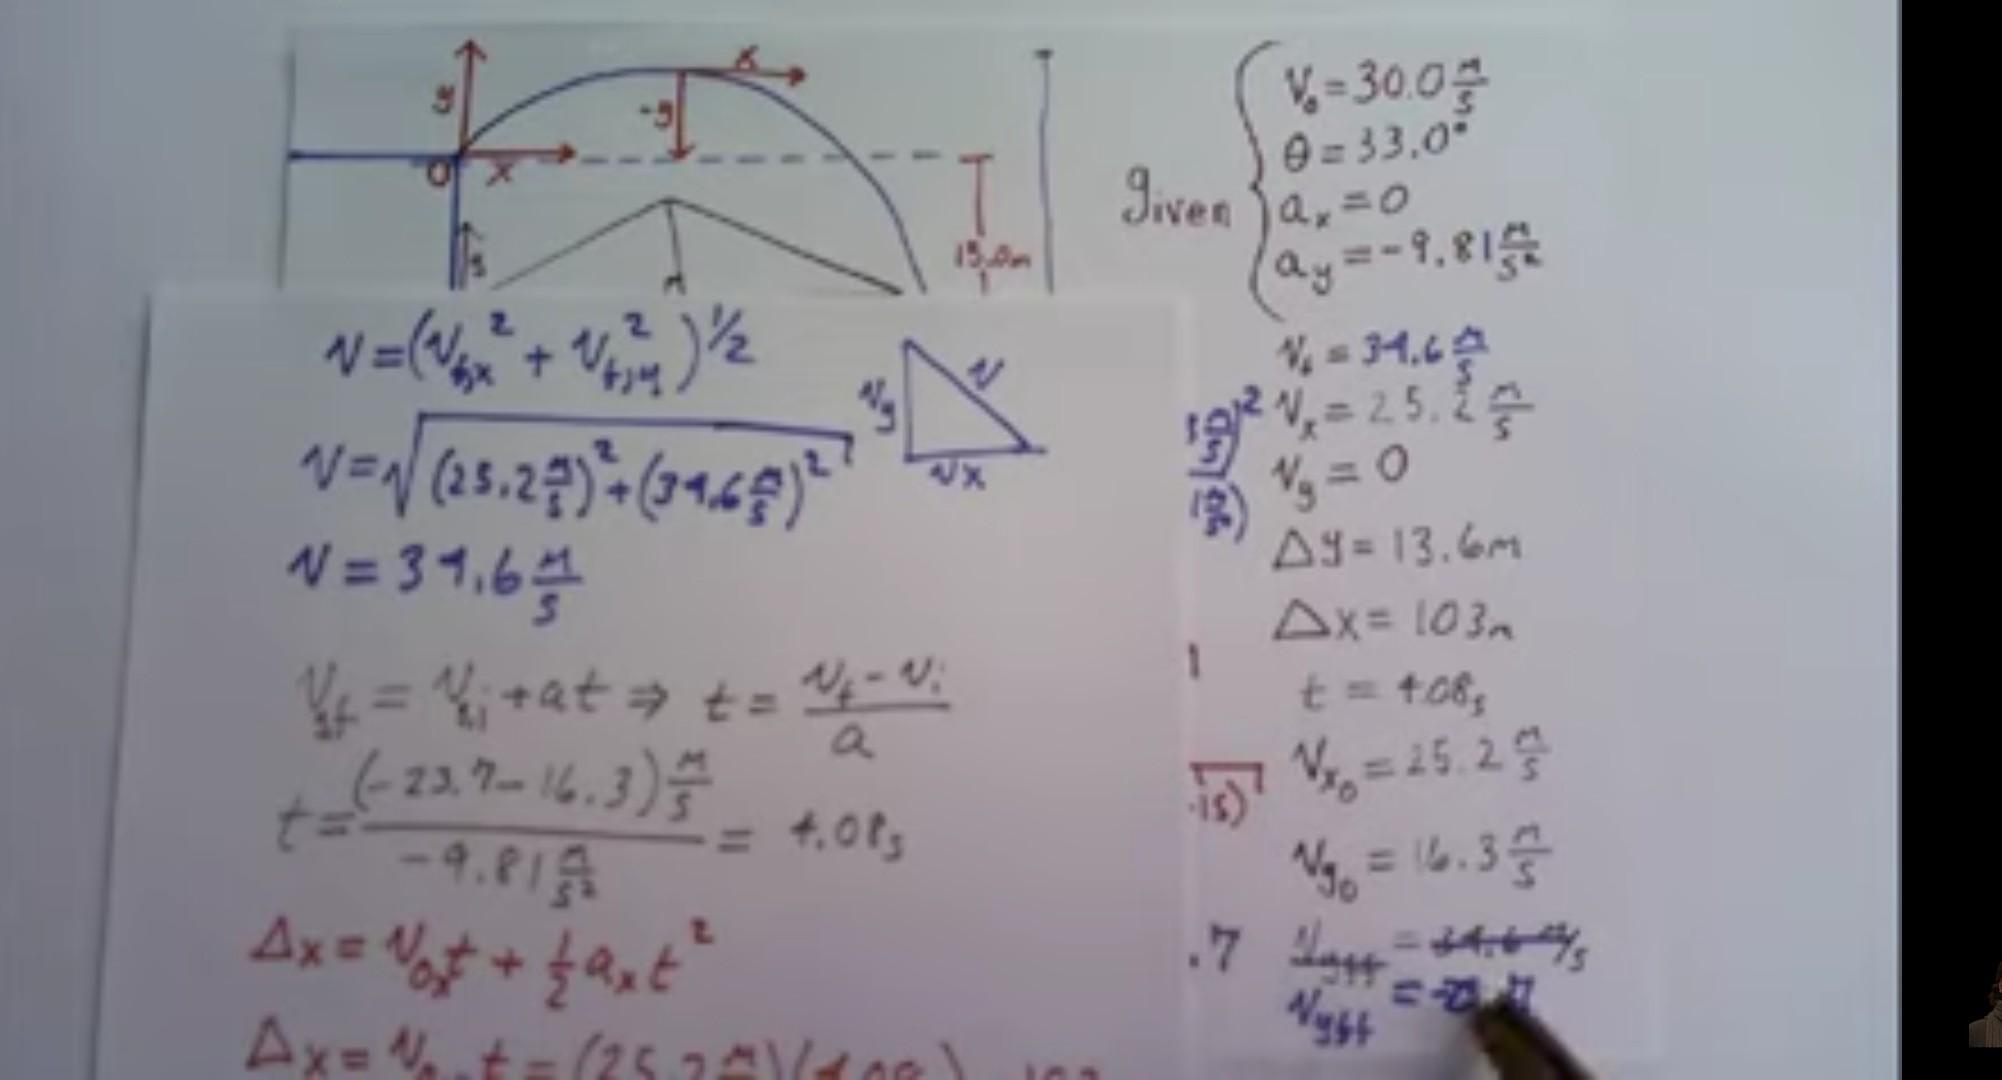 y
x
-y
0
x
15.0m
y
Given
V₀ = 30.0 m/s
θ = 33.0°
aₓ = 0
a_y = -9.81 m/s²
V = (V_fx² + V_f,y²)^1/2
V_y
V
Vx
V = √(25.2 m/s)² + (34.6 m/s)²
V = 34.6 m/s
V_yf = V_yi + at ⇒ t = (V_f - V_i)/a
t = (-23.7 - 16.3) m/s / -9.81 m/s² = 4.08s
Δx = V₀ₓt + ½aₓt²
t = (25.2 m/s)(4.08
V_f = 34.6 m/s
Vₓ = 25.2 m/s
V_y = 0
Δy = 13.6m
Δx = 103m
t = 4.08s
Vx₀ = 25.2 m/s
Vy₀ = 16.3 m/s
.7
V_yff = 34.6 m/s
V_yff =